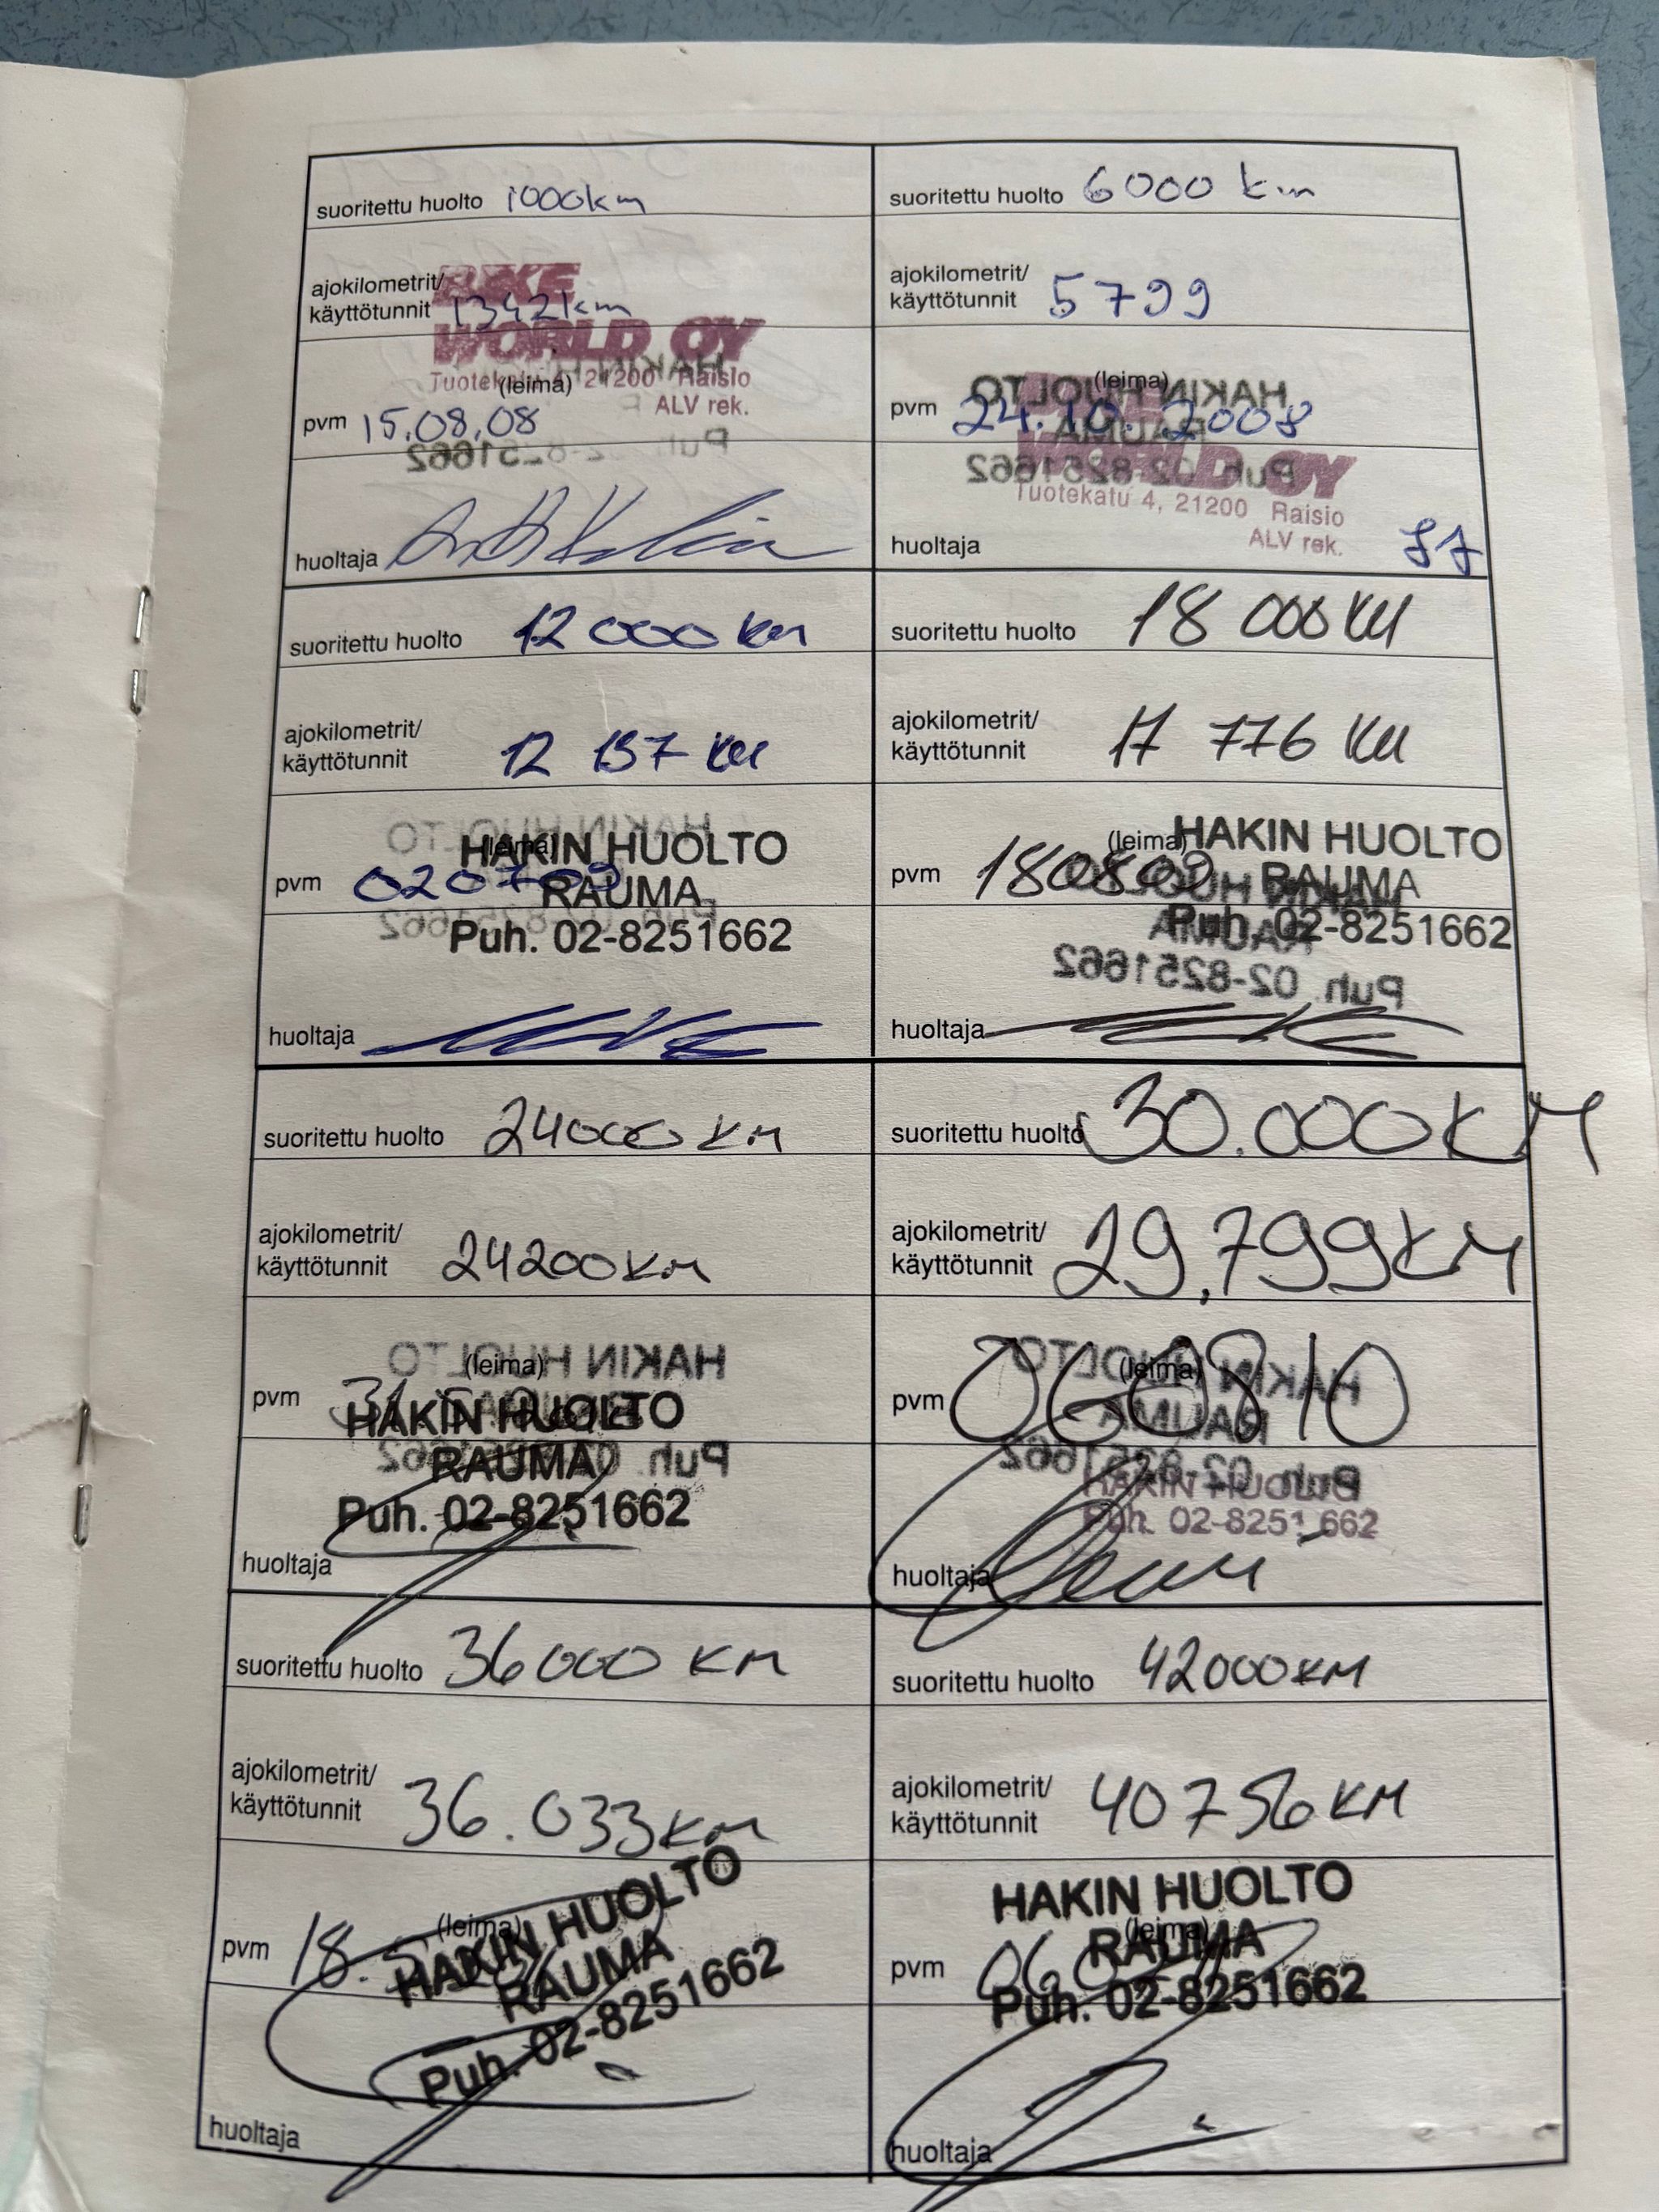 suoritettu huolto 1000km
ajokilometrit/
käyttötunnit 1342km
BIKE
WORLD OY
Tuotekatu 4, 21200 Raisio
(leima)
ALV rek.
pvm 15.08.08
huoltaja
suoritettu huolto 6000 km
ajokilometrit/
käyttötunnit 5799
(leima)
pvm 24.10.2008
WORLD OY
Tuotekatu 4, 21200 Raisio
ALV rek.
huoltaja JJ
suoritettu huolto 12 000 km
ajokilometrit/
käyttötunnit 12 157 km
HAKIN HUOLTO
(leima)
pvm 020709 RAUMA
Puh. 02-8251662
huoltaja
suoritettu huolto 18 000 km
ajokilometrit/
käyttötunnit 17 776 km
(leima) HAKIN HUOLTO
pvm 180809 RAUMA
Puh. 02-8251662
huoltaja
suoritettu huolto 24000 KM
ajokilometrit/
käyttötunnit 24200KM
(leima)
pvm
HAKIN HUOLTO
RAUMA
Puh. 02-8251662
huoltaja
suoritettu huolto 30.000KM
ajokilometrit/
käyttötunnit 29,799KM
(leima)
pvm 060810
HAKIN HUOLTO
Puh. 02-8251662
huoltaja
suoritettu huolto 36000 KM
ajokilometrit/
käyttötunnit 36.033KM
(leima)
pvm 18.
HAKIN HUOLTO
RAUMA
Puh. 02-8251662
huoltaja
suoritettu huolto 42000KM
ajokilometrit/
käyttötunnit 40756KM
HAKIN HUOLTO
(leima)
RAUMA
pvm 06
Puh. 02-8251662
huoltaja